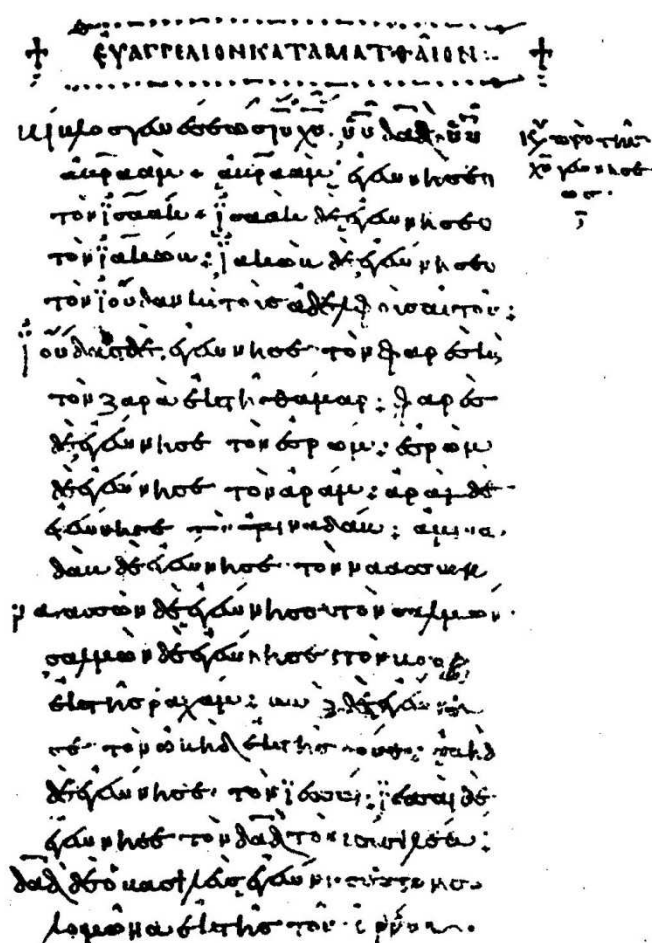 ΕΥΑΓΓΕΛΙΟΝ ΚΑΤΑ ΜΑΤΘΑΙΟΝ
Βίβλος γενέσεως ιυ χυ υυ δαδ υυ
ἀβραάμ· ἀβραὰμ ἐγέννησεν
τὸν ϊσαάκ· ϊσαὰκ δὲ ἐγέννησε
τὸν ϊακώβ: ϊακὼβ δὲ ἐγέννησε
τὸν ϊούδαν κ τοὺς ἀδελφοὺς αὐτοῦ:
ϊούδας δὲ ἐγέννησε τὸν φαρὲς κ
τὸν ζαρὰ ἐκ τῆς θάμαρ: φαρὲς
δὲ ἐγέννησε τὸν ἐσρώμ: ἐσρὼμ
δὲ ἐγέννησε τὸν ἀράμ: ἀρὰμ δὲ
ἐγέννησε τὸν ἀμιναδάβ: ἀμινα
δὰβ δὲ ἐγέννησε τὸν ναασσὼν
ναασσὼν δὲ ἐγέννησε τὸν σαλμών·
σαλμὼν δὲ ἐγέννησε τὸν βοὸζ
ἐκ τῆς ῥαχάβ: βοὸζ δὲ ἐγέννη
σε τὸν ὠβὴδ ἐκ τῆς ῥούθ: ὠβὴδ
δὲ ἐγέννησε τὸν ϊεσσαί: ϊεσσαὶ δὲ
ἐγέννησε τὸν δαδ τὸν βασιλέα:
δαδ δὲ ὁ βασιλεὺς ἐγέννησε τὸν σο
λομῶνα ἐκ τῆς τοῦ
Κυ πρὸ τῆς
χυ γεννήσε
ως·